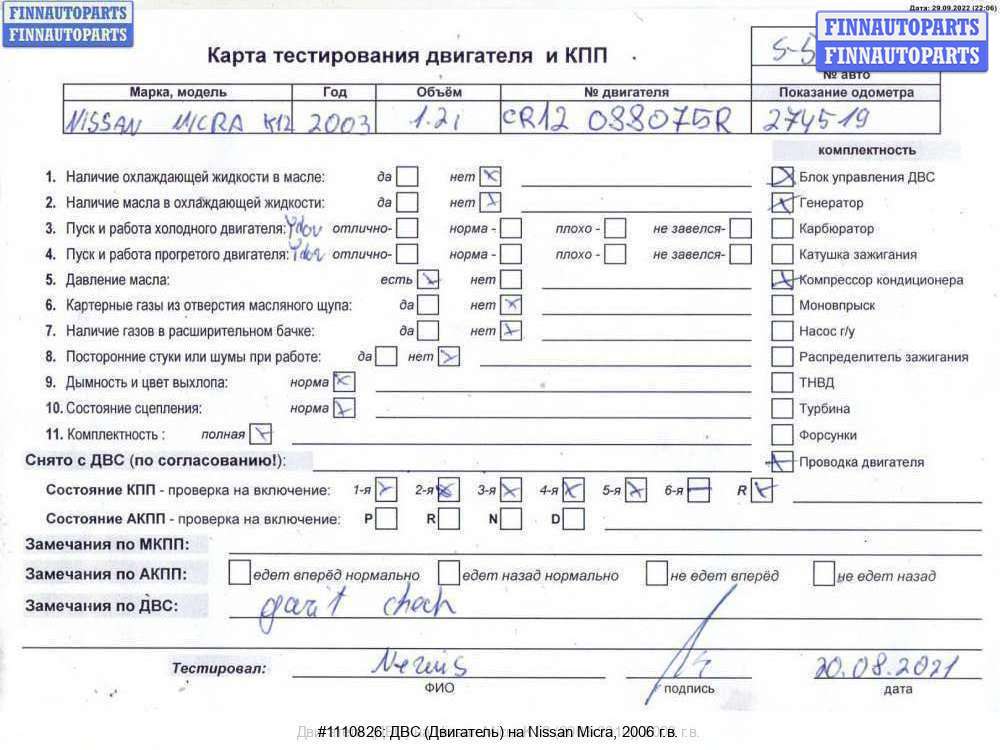 Дата: 29.09.2022 (22:06)
FINNAUTOPARTS
FINNAUTOPARTS
FINNAUTOPARTS
FINNAUTOPARTS
Карта тестирования двигателя и КПП
№ авто
Марка, модель Год Объём № двигателя Показание одометра
NISSAN MICRA K12 2003 1.2i CR12 088075R 274519
комплектность
1. Наличие охлаждающей жидкости в масле: да нет Блок управления ДВС
2. Наличие масла в охлаждающей жидкости: да нет Генератор
3. Пуск и работа холодного двигателя: отлично- норма - плохо - не завелся- Карбюратор
4. Пуск и работа прогретого двигателя: отлично- норма - плохо - не завелся- Катушка зажигания
5. Давление масла: есть нет Компрессор кондиционера
6. Картерные газы из отверстия масляного щупа: да нет Моновпрыск
7. Наличие газов в расширительном бачке: да нет Насос г/у
8. Посторонние стуки или шумы при работе: да нет Распределитель зажигания
9. Дымность и цвет выхлопа: норма ТНВД
10. Состояние сцепления: норма Турбина
11. Комплектность : полная Форсунки
Снято с ДВС (по согласованию!): Проводка двигателя
Состояние КПП - проверка на включение: 1-я 2-я 3-я 4-я 5-я 6-я R
Состояние АКПП - проверка на включение: P R N D
Замечания по МКПП:
Замечания по АКПП: едет вперёд нормально едет назад нормально не едет вперёд не едет назад
Замечания по ДВС: garit chech
Тестировал: 20.08.2021
ФИО подпись дата
#1110826; ДВС (Двигатель) на Nissan Micra, 2006 г.в.